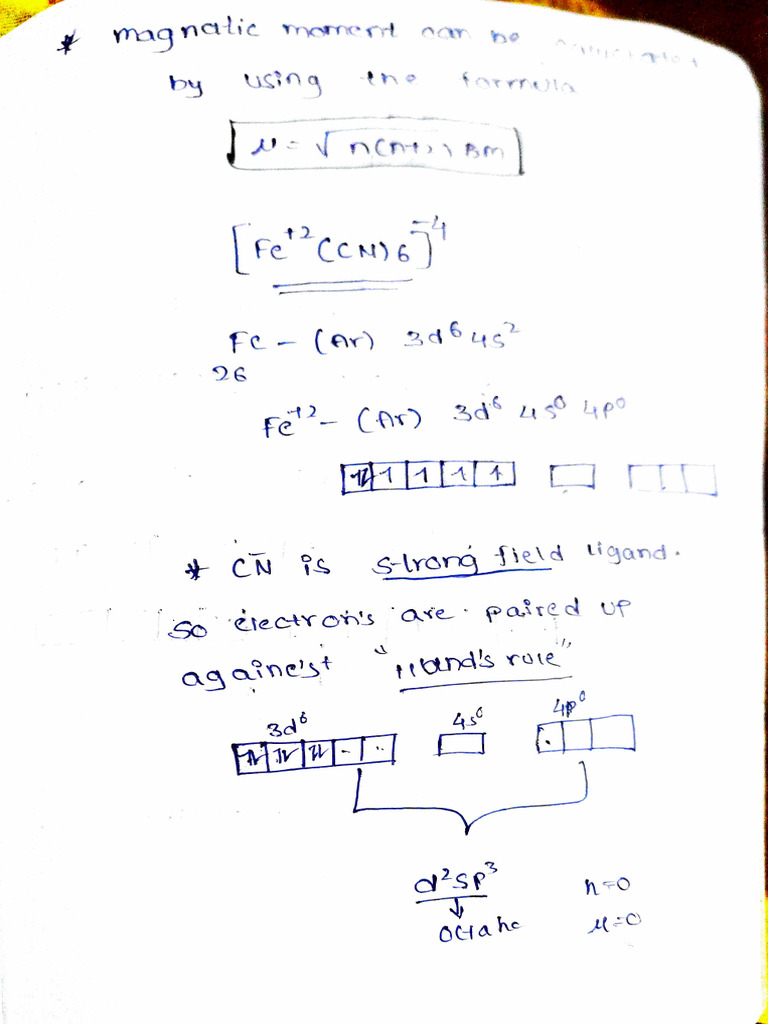 * magnatic moment can be
by using the formula
μ = √ n(n+2) BM
[Fe⁺²(CN)6]⁻⁴
Fe - (Ar) 3d⁶ 4s²
26
Fe⁺² - (Ar) 3d⁶ 4s⁰ 4p⁰
1L 1 1 1 1
* CN̄ is strong field ligand.
So electron's are paired up
againe'st "Hund's role"
3d⁶ 4s⁰ 4p⁰
1L 1L 1L . .. .
d²sp³ n=0
↓
octahe μ=0